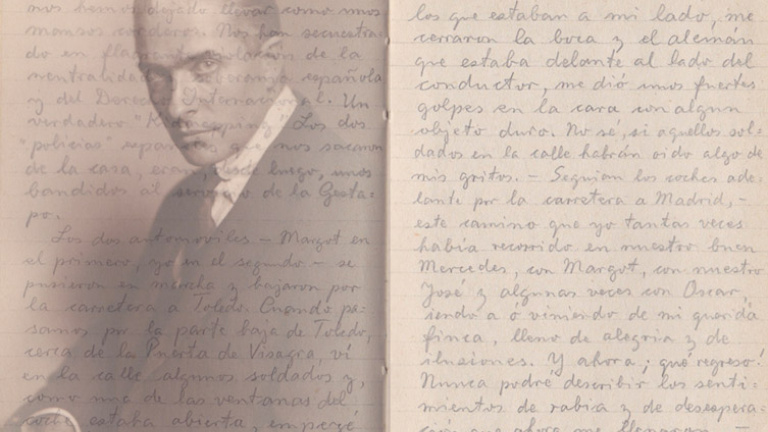 nos hemos dejado llevar como unos
mansos corderos. Nos han secuestra-
do en flagrante violación de la
neutralidad y soberanía española
y del Derecho Internacional. Un
verdadero "Kidnapping". Los dos
"policías" españoles, que nos sacaron
de la casa, eran, desde luego, unos
bandidos al servicio de la Gesta-
po.
Los dos automoviles — Margot en
el primero, yo en el segundo — se
pusieron en marcha y bajaron por
la carretera a Toledo. Cuando pa-
samos por la parte baja de Toledo,
cerca de la Puerta de Visagra, vi
en la calle algunos soldados y,
como una de las ventanas del
coche estaba abierta, empecé
los que estaban a mi lado, me
cerraron la boca y el alemán
que estaba delante al lado del
conductor, me dió unos fuertes
golpes en la cara con algun
objeto duro. No sé, si aquellos sol-
dados en la calle habrán oido algo de
mis gritos. — Seguian los coches ade-
lante por la carretera a Madrid, —
este camino que yo tantas veces
había recorrido en nuestro buen
Mercedes, con Margot, con nuestro
José y algunas veces con Oscar,
iendo a o viniendo de mi querida
finca, lleno de alegria y de
ilusiones. Y ahora ¡ qué regreso!
Nunca podré describir los senti-
mientos de rabia y de desespera-
ción que ahora me llenaron —